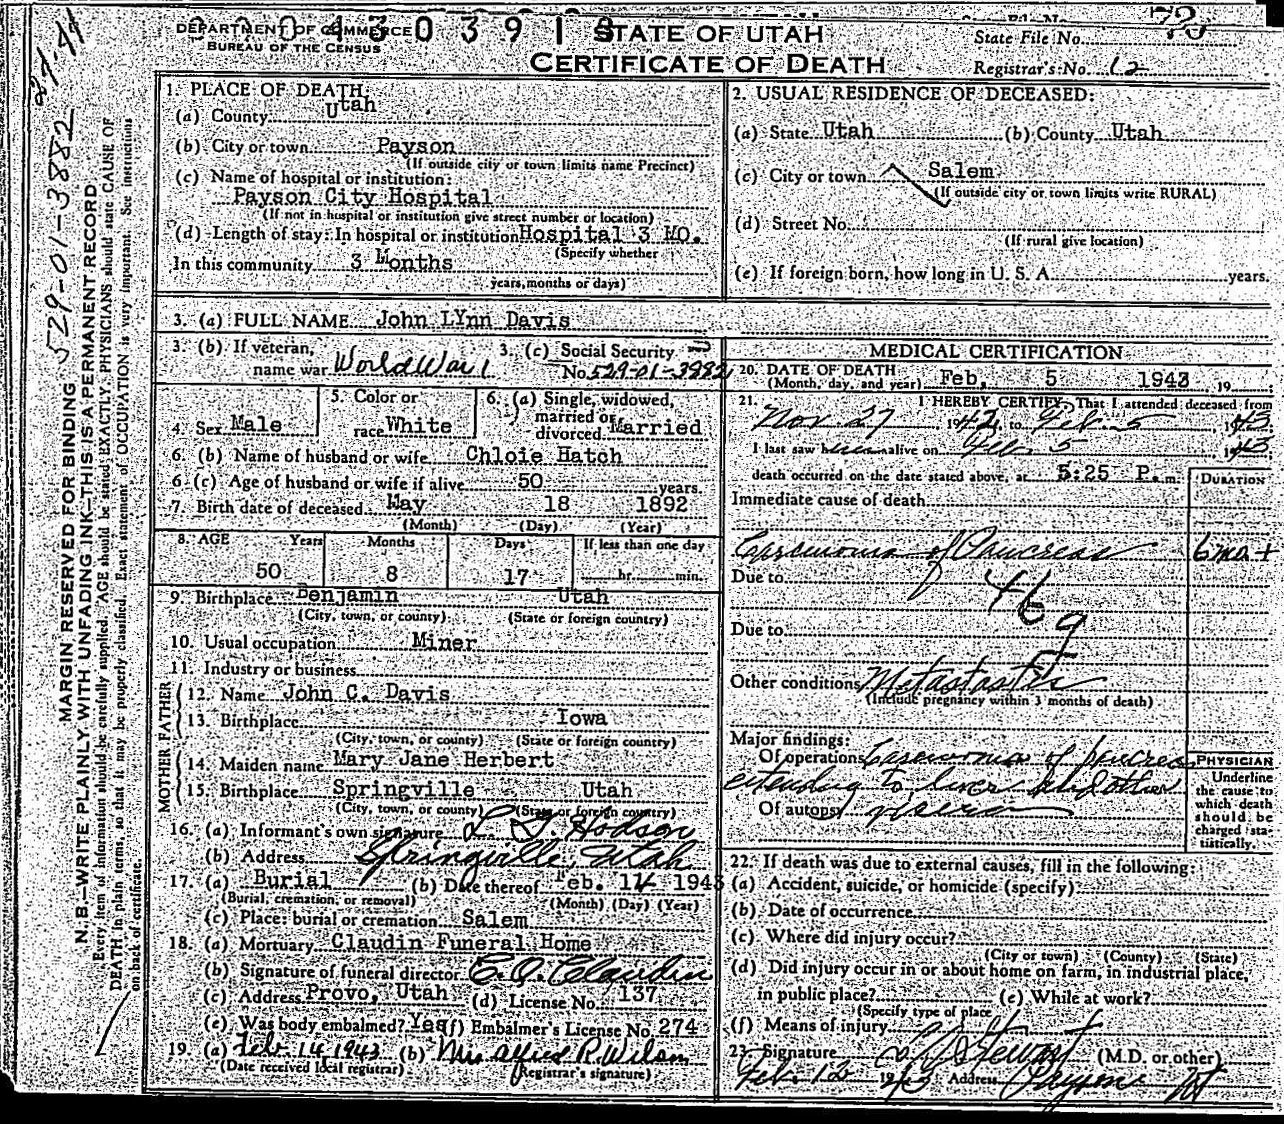 DEPARTMENT OF COMMERCE
BUREAU OF THE CENSUS
STATE OF UTAH
CERTIFICATE OF DEATH
State File No. 73
Registrar's No. 12
27-41
529-01-3882
MARGIN RESERVED FOR BINDING
N. B.—WRITE PLAINLY WITH UNFADING INK—THIS IS A PERMANENT RECORD
Every item of information should be carefully supplied. AGE should be stated EXACTLY. PHYSICIANS should state CAUSE OF
DEATH in plain terms, so that it may be properly classified. Exact statement of OCCUPATION is very important. See instructions
on back of certificate.
1. PLACE OF DEATH:
(a) County Utah
(b) City or town Payson
(If outside city or town limits name Precinct)
(c) Name of hospital or institution:
Payson City Hospital
(If not in hospital or institution give street number or location)
(d) Length of stay: In hospital or institution Hospital 3 MO.
(Specify whether
In this community 3 Months
years, months or days)
2. USUAL RESIDENCE OF DECEASED:
(a) State Utah (b) County Utah
(c) City or town Salem
(If outside city or town limits write RURAL)
(d) Street No.
(If rural give location)
(e) If foreign born, how long in U. S. A. years.
3. (a) FULL NAME John LYnn Davis
3. (b) If veteran,
name war World War 1
3. (c) Social Security
No. 529-01-3982
4. Sex Male
5. Color or
race White
6. (a) Single, widowed,
married or
divorced Married
6. (b) Name of husband or wife Chloie Hatch
6. (c) Age of husband or wife if alive 50 years.
7. Birth date of deceased May 18 1892
(Month) (Day) (Year)
8. AGE Years Months Days If less than one day
50 8 17 hr. min.
9. Birthplace Benjamin Utah
(City, town, or county) (State or foreign country)
10. Usual occupation Miner
11. Industry or business
FATHER
12. Name John C. Davis
13. Birthplace Iowa
(City, town, or county) (State or foreign country)
MOTHER
14. Maiden name Mary Jane Herbert
15. Birthplace Springville Utah
(City, town, or county) (State or foreign country)
16. (a) Informant's own signature L. G. Hodson
(b) Address Springville, Utah
17. (a) Burial (b) Date thereof Feb. 14 1943
(Burial, cremation, or removal) (Month) (Day) (Year)
(c) Place: burial or cremation Salem
18. (a) Mortuary Claudin Funeral Home
(b) Signature of funeral director C. O. Claudin
(c) Address Provo, Utah (d) License No. 137
(e) Was body embalmed? Yes (f) Embalmer's License No. 274
19. (a) Feb. 14, 1943 (b) Mrs Alfred R. Wilson
(Date received local registrar) (Registrar's signature)
MEDICAL CERTIFICATION
20. DATE OF DEATH
(Month, day, and year) Feb. 5 1943 , 19
21. I HEREBY CERTIFY, That I attended deceased from
Nov 27 1942, to Feb. 5, 1943
I last saw him alive on Feb. 5 1943
death occurred on the date stated above, at 5:25 P. m.
DURATION
Immediate cause of death
Carcinoma of Pancreas 6 mo +
Due to
46 g
Due to
Other conditions
(Include pregnancy within 3 months of death)
Major findings:
Of operations Carcinoma of pancreas
extending to liver and other
Of autopsy
PHYSICIAN
Underline
the cause to
which death
should be
charged sta-
tistically.
22. If death was due to external causes, fill in the following:
(a) Accident, suicide, or homicide (specify)
(b) Date of occurrence
(c) Where did injury occur?
(City or town) (County) (State)
(d) Did injury occur in or about home on farm, in industrial place,
in public place? (e) While at work?
(Specify type of place
(f) Means of injury
23. Signature Stewart (M.D. or other)
Feb. 12 1943 Address Payson Ut